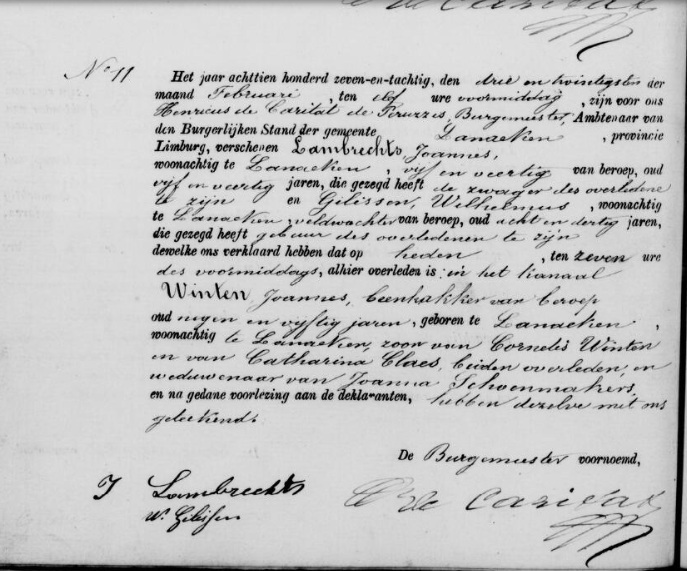 de Caritat
N° 11
Het jaar achttien honderd zeven-en-tachtig, den drie en twintigsten der
maand Februari , ten elf ure voormiddag , zijn voor ons
Henricus de Caritat de Peruzzis, Burgemeester, Ambtenaar van
den Burgerlijken Stand der gemeente Lanaeken , provincie
Limburg, verschenen Lambrechts, Joannes,
woonachtig te Lanaeken , vijf en veertig van beroep, oud
vijf en veertig jaren, die gezegd heeft de zwager des overledene
te zijn en Gilissen, Wilhelmus , woonachtig
te Lanaeken, veldwachter van beroep, oud acht en dertig jaren,
die gezegd heeft gebuur des overledenen te zijn
dewelke ons verklaard hebben dat op heden , ten zeven ure
des voormiddags, alhier overleden is: in het kanaal
Winten, Joannes, beenhakker van beroep
oud negen en vijftig jaren, geboren te Lanaeken ,
woonachtig te Lanaeken, zoon van Cornelis Winten
en van Catharina Claes, beiden overleden, en
weduwenaar van Joanna Schoenmakers,
en na gedane voorlezing aan de deklaranten, hebben dezelve met ons
geteekend.
De Burgemeester voornoemd,
J Lambrechts
W. Gilissen
de Caritat